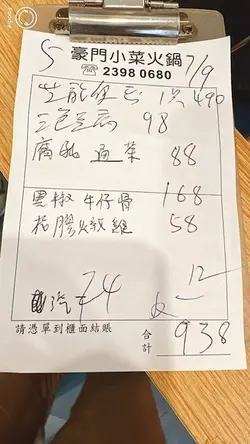 5 豪門小菜火鍋 7/9
☎ 2398 0680
490
三色豆腐 98
腐乳通菜 88
黑椒牛仔骨 168
花膠 雞 58
汽 74 12
請憑單到櫃面結賬 合計 938